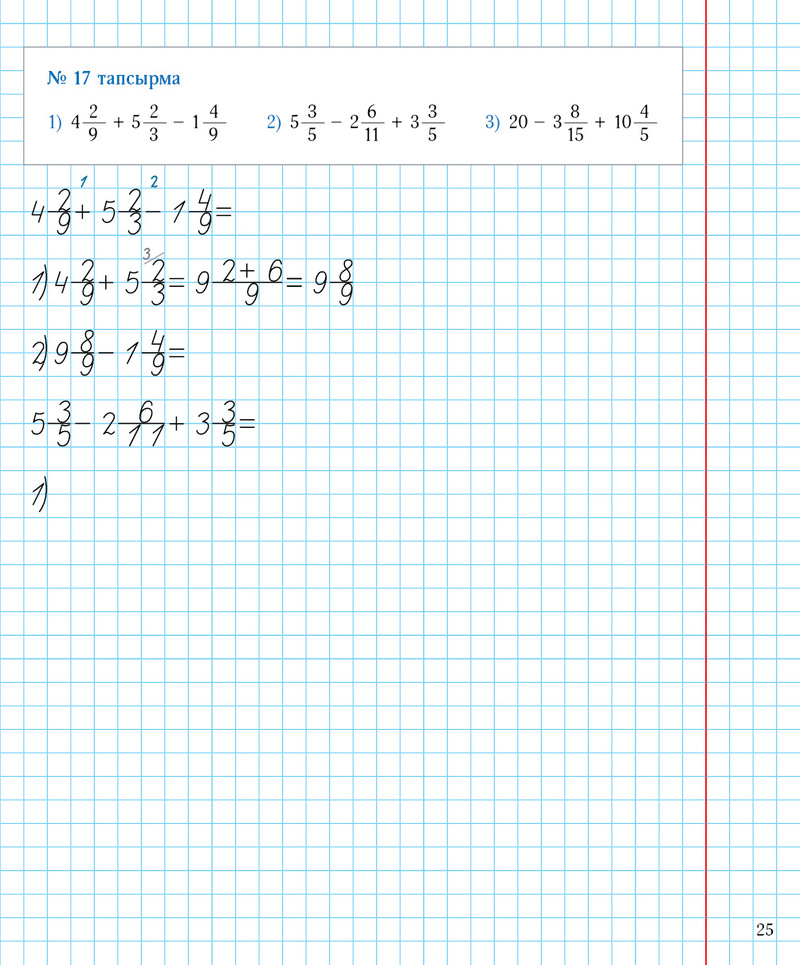 № 17 тапсырма
1) 4 2/9 + 5 2/3 − 1 4/9 2) 5 3/5 − 2 6/11 + 3 3/5 3) 20 − 3 8/15 + 10 4/5
1 2
4 2/9 + 5 2/3 − 1 4/9 =
3/
1) 4 2/9 + 5 2/3 = 9 (2 + 6)/9 = 9 8/9
2) 9 8/9 − 1 4/9 =
5 3/5 − 2 6/11 + 3 3/5 =
1)
25